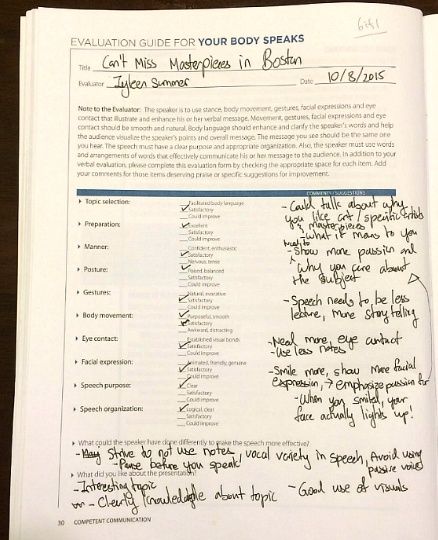 6241
EVALUATION GUIDE FOR YOUR BODY SPEAKS
Title Can't Miss Masterpieces in Boston
Evaluator Summer Date 10/8/2015
Note to the Evaluator: The speaker is to use stance, body movement, gestures, facial expressions and eye
contact that illustrate and enhance his or her verbal message. Movement, gestures, facial expressions and eye
contact should be smooth and natural. Body language should enhance and clarify the speaker's words and help
the audience visualize the speaker's points and overall message. The message you see should be the same one
you hear. The speech must have a clear purpose and appropriate organization. Also, the speaker must use words
and arrangements of words that effectively communicate his or her message to the audience. In addition to your
verbal evaluation, please complete this evaluation form by checking the appropriate space for each item. Add
your comments for those items deserving praise or specific suggestions for improvement.
COMMENTS / SUGGESTIONS
▸ Topic selection: Facilitated body language
✓ Satisfactory
Could improve
▸ Preparation: ✓ Excellent
Satisfactory
Could improve
▸ Manner: Confident, enthusiastic
✓ Satisfactory
Nervous, tense
▸ Posture: ✓ Poised, balanced
Satisfactory
Could improve
▸ Gestures: Natural, evocative
✓ Satisfactory
Could improve
▸ Body movement: Purposeful, smooth
✓ Satisfactory
Awkward, distracting
▸ Eye contact: Established visual bonds
✓ Satisfactory
Could improve
▸ Facial expression: Animated, friendly, genuine
✓ Satisfactory
Could improve
▸ Speech purpose: ✓ Clear
Satisfactory
Could improve
▸ Speech organization: ✓ Logical, clear
Satisfactory
Could improve
- Could talk about why
you like art / specific artists
& masterpieces
- what it means to you
- Show more passion and
why you care about
the subject
- Speech needs to be less
lecture, more story telling
- Need more eye contact
- Use less notes!
- Smile more, show more facial
expression, → emphasize passion for
- When you smiled, your
face actually lights up!
▸ What could the speaker have done differently to make the speech more effective?
- Strive to not use notes, vocal variety in speech, Avoid using
- Pause before you speak passive voice
▸ What did you like about the presentation?
- Interesting topic - Good use of visuals
- Clearly knowledgable about topic
30 COMPETENT COMMUNICATION